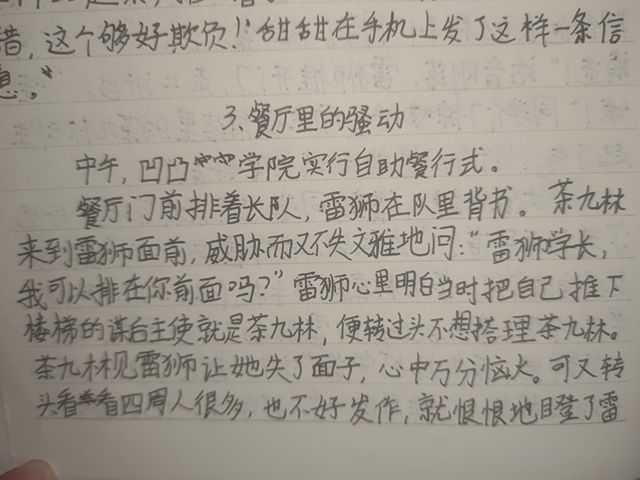 错，这个够好欺负！”甜甜在手机上发了这样一条信
息。”
3、餐厅里的骚动
中午，凹凸学院实行自助餐行式。
餐厅门前排着长队，雷狮在队里背书。茶九林
来到雷狮面前，威胁而又不失文雅地问：“雷狮学长，
我可以排在你前面吗？”雷狮心里明白当时把自己推下
楼梯的谋后主使就是茶九林，便转过头不想搭理茶九林。
茶九林见雷狮让她失了面子，心中万分恼火。可又转
头看看四周人很多，也不好发作，就恨恨地瞪了雷